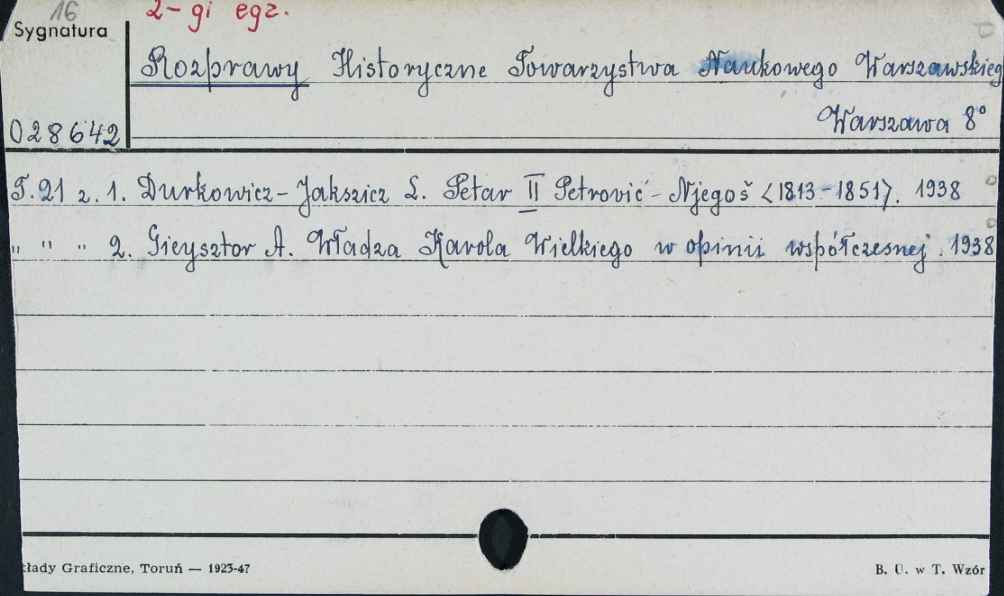 16
2-gi egz.
Sygnatura
Rozprawy Historyczne Towarzystwa Naukowego Warszawskieg
028642
Warszawa 8°
T. 21 z. 1. Durkowicz-Jakszicz L. Petar II Petrović-Njegoš <1813-1851>. 1938
" " " 2. Gieysztor A. Władza Karola Wielkiego w opinii współczesnej. 1938
kłady Graficzne, Toruń — 1923-47
B. U. w T. Wzór